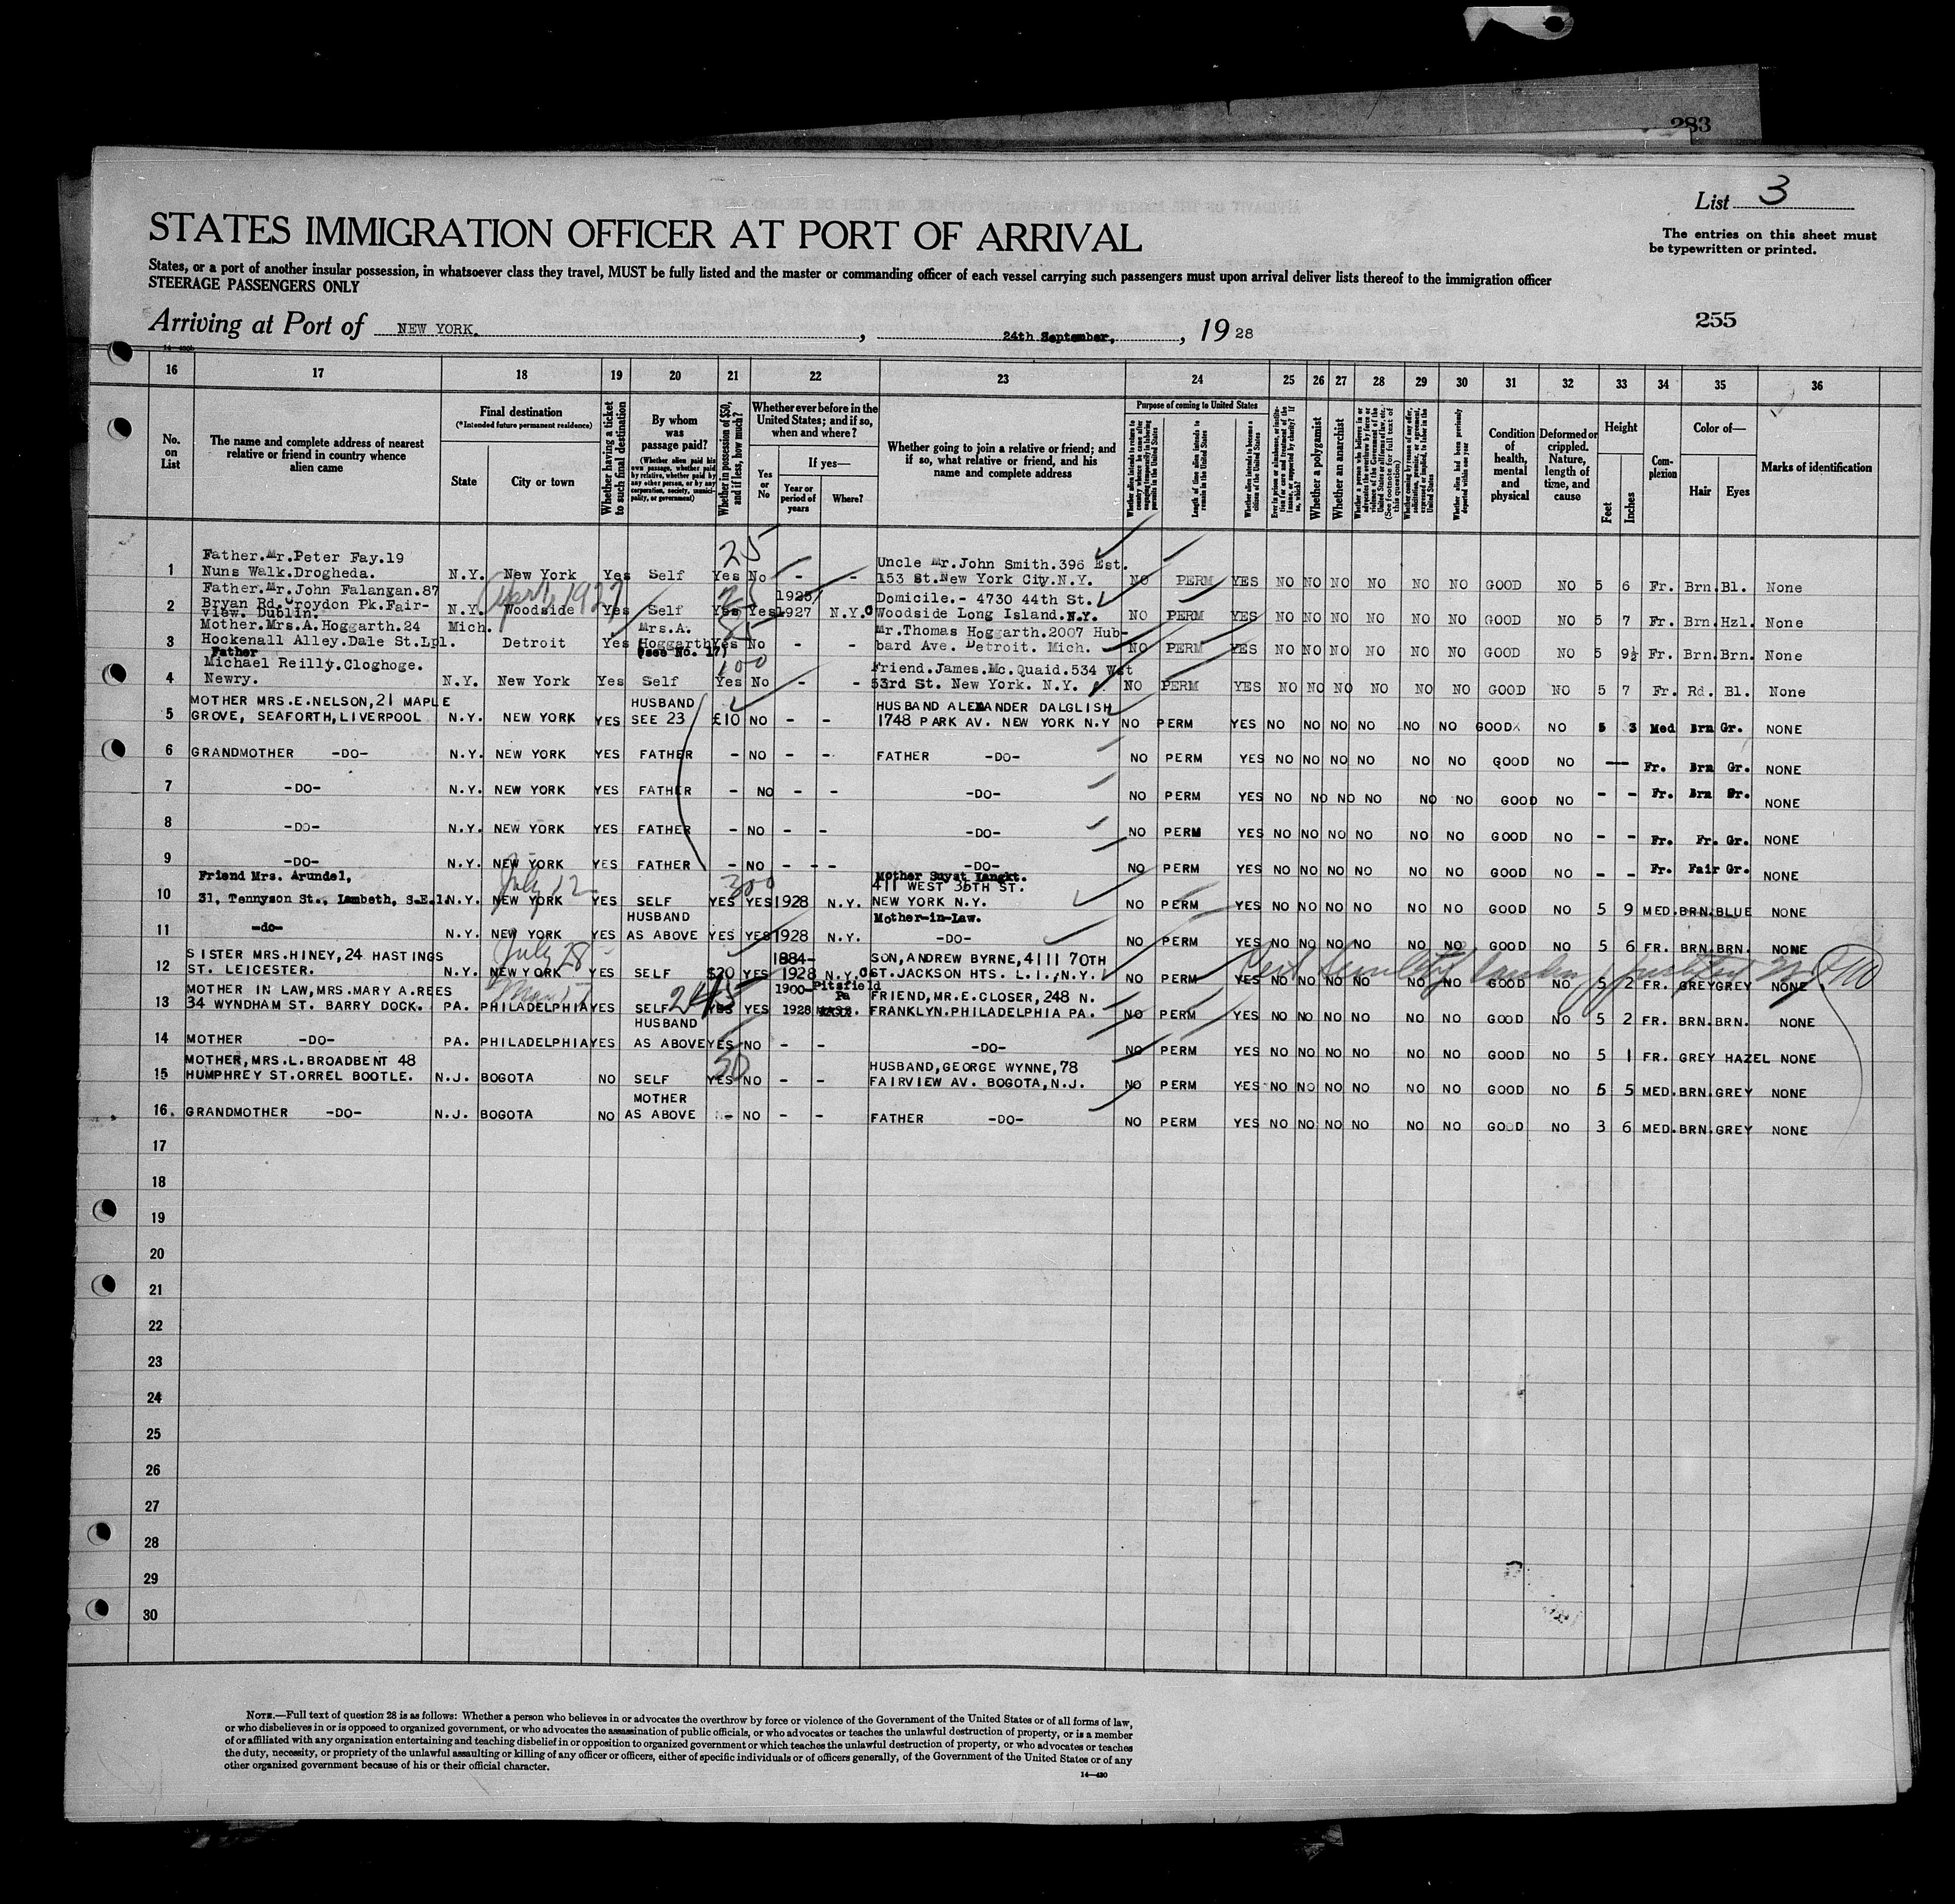 283
List 3
STATES IMMIGRATION OFFICER AT PORT OF ARRIVAL
The entries on this sheet must
be typewritten or printed.
States, or a port of another insular possession, in whatsoever class they travel, MUST be fully listed and the master or commanding officer of each vessel carrying such passengers must upon arrival deliver lists thereof to the immigration officer
STEERAGE PASSENGERS ONLY
Arriving at Port of NEW YORK. , 24th September, , 19 28
255
16 17 18 19 20 21 22 23 24 25 26 27 28 29 30 31 32 33 34 35 36
No. on List
The name and complete address of nearest relative or friend in country whence alien came
Final destination
(*Intended future permanent residence)
State
City or town
Whether having a ticket to such final destination
By whom was passage paid?
(Whether alien paid his own passage, whether paid by relative, whether paid by any other person, or by any corporation, society, municipality, or government)
Whether in possession of $50, and if less, how much?
Whether ever before in the United States; and if so, when and where?
Yes or No
If yes—
Year or period of years
Where?
Whether going to join a relative or friend; and if so, what relative or friend, and his name and complete address
Purpose of coming to United States
Whether alien intends to return to country whence he came after engaging temporarily in laboring pursuits in the United States
Length of time alien intends to remain in the United States
Whether alien intends to become a citizen of the United States
Ever in prison or almshouse, or institution for care and treatment of the insane, or supported by charity? If so, which?
Whether a polygamist
Whether an anarchist
Whether coming by reason of any offer, solicitation, promise, or agreement, expressed or implied, to labor in the United States
Whether alien had been previously deported within one year
Condition of health, mental and physical
Deformed or crippled. Nature, length of time, and cause
Height
Feet
Inches
Complexion
Color of—
Hair
Eyes
Marks of identification
25
1 Father.Mr.Peter Fay.19
Nuns Walk.Drogheda. N.Y. New York Yes Self Yes No - - Uncle Mr.John Smith.396 Est.
153 St.New York City.N.Y. NO PERM YES NO NO NO NO NO NO GOOD NO 5 6 Fr. Brn. Bl. None
April 1927
2 Father.Mr.John Falangan.87
Bryan Rd.Croydon Pk.Fair-
view. Dublin. N.Y. Woodside Yes Self Yes Yes 1925/
1927 N.Y.C Domicile.- 4730 44th St.
Woodside Long Island.N.Y. NO PERM YES NO NO NO NO NO NO GOOD NO 5 7 Fr. Brn. Hzl. None
3 Mother.Mrs.A.Hoggarth.24
Hockenall Alley.Dale St.Lpl. Mich. Detroit Yes Mrs.A.
Hoggarth
(see No. 17) Yes No - - Mr.Thomas Hoggarth.2007 Hub-
bard Ave. Detroit. Mich. NO PERM YES NO NO NO NO NO NO GOOD NO 5 9½ Fr. Brn. Brn. None
100
4 Father
Michael Reilly.Cloghoge.
Newry. N.Y. New York Yes Self Yes No - - Friend.James.Mc.Quaid.534 Wst
53rd St. New York. N.Y. NO PERM YES NO NO NO NO NO NO GOOD NO 5 7 Fr. Rd. Bl. None
5 MOTHER MRS.E.NELSON,21 MAPLE
GROVE, SEAFORTH,LIVERPOOL N.Y. NEW YORK YES HUSBAND
SEE 23 £10 NO - - HUSBAND ALEXANDER DALGLISH
1748 PARK AV. NEW YORK N.Y NO PERM YES NO NO NO NO NO NO GOOD NO 5 3 Med Brn Gr. NONE
6 GRANDMOTHER -DO- N.Y. NEW YORK YES FATHER - NO - - FATHER -DO- NO PERM YES NO NO NO NO NO NO GOOD NO — Fr. Brn Gr. NONE
7 -DO- N.Y. NEW YORK YES FATHER - NO - - -DO- NO PERM YES NO NO NO NO NO NO GOOD NO - - Fr. Brn Gr. NONE
8 -DO- N.Y. NEW YORK YES FATHER - NO - - -DO- NO PERM YES NO NO NO NO NO NO GOOD NO - - Fr. Fr. Gr. NONE
9 -DO- N.Y. NEW YORK YES FATHER - NO - - - -DO- NO PERM YES NO NO NO NO NO NO GOOD NO - - Fr. Fair Gr. NONE
July 12 300
10 Friend Mrs. Arundel,
31, Tennyson St., Lambeth, S.E.1. N.Y. NEW YORK YES SELF YES YES 1928 N.Y. Mother
411 WEST 35TH ST.
NEW YORK N.Y. NO PERM YES NO NO NO NO NO NO GOOD NO 5 9 MED. BRN. BLUE NONE
11 -do- N.Y. NEW YORK YES HUSBAND
AS ABOVE YES YES 1928 N.Y. Mother-in-Law.
-DO- NO PERM YES NO NO NO NO NO NO GOOD NO 5 6 FR. BRN. BRN. NONE
July 28
12 SISTER MRS.HINEY,24 HASTINGS
ST. LEICESTER. N.Y. NEW YORK YES SELF $20 YES 1884-
1928 N.Y.C. SON,ANDREW BYRNE,4111 70TH
ST.JACKSON HTS. L.I.,N.Y. NO PERM YES NO NO NO NO NO NO GOOD NO 5 2 FR. GREY GREY NONE
13 MOTHER IN LAW,MRS.MARY A.REES
34 WYNDHAM ST. BARRY DOCK. PA. PHILADELPHIA YES SELF 245 YES YES 1900-
1928 Pitsfield
Pa FRIEND,MR.E.CLOSER,248 N.
FRANKLYN.PHILADELPHIA PA. NO PERM YES NO NO NO NO NO NO GOOD NO 5 2 FR. BRN. BRN. NONE
14 MOTHER -DO- PA. PHILADELPHIA YES HUSBAND
AS ABOVE YES NO - - -DO- NO PERM YES NO NO NO NO NO NO GOOD NO 5 1 FR. GREY HAZEL NONE
50
15 MOTHER,MRS.L.BROADBENT 48
HUMPHREY ST.ORREL BOOTLE. N.J. BOGOTA NO SELF YES NO - - HUSBAND,GEORGE WYNNE,78
FAIRVIEW AV. BOGOTA,N.J. NO PERM YES NO NO NO NO NO NO GOOD NO 5 5 MED. BRN. GREY NONE
16. GRANDMOTHER -DO- N.J. BOGOTA NO MOTHER
AS ABOVE - NO - - FATHER -DO- NO PERM YES NO NO NO NO NO NO GOOD NO 3 6 MED. BRN. GREY NONE
17
18
19
20
21
22
23
24
25
26
27
28
29
30
NOTE.—Full text of question 28 is as follows: Whether a person who believes in or advocates the overthrow by force or violence of the Government of the United States or of all forms of law,
or who disbelieves in or is opposed to organized government, or who advocates the assassination of public officials, or who advocates or teaches the unlawful destruction of property, or is a member
of or affiliated with any organization entertaining and teaching disbelief in or opposition to organized government or which teaches the unlawful destruction of property, or who advocates or teaches
the duty, necessity, or propriety of the unlawful assaulting or killing of any officer or officers, either of specific individuals or of officers generally, of the Government of the United States or of any
other organized government because of his or their official character.
14—430